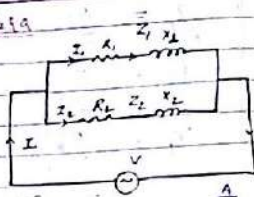 Z̄₁
I₁ R₁ X₁
I₂ R₂ Z₂ X₂
I
V
A